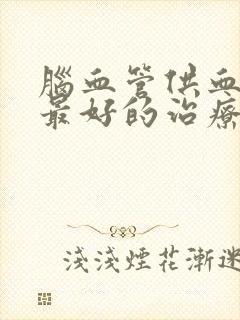 腦血管供血
最好的治療
淺淺煙花漸迷